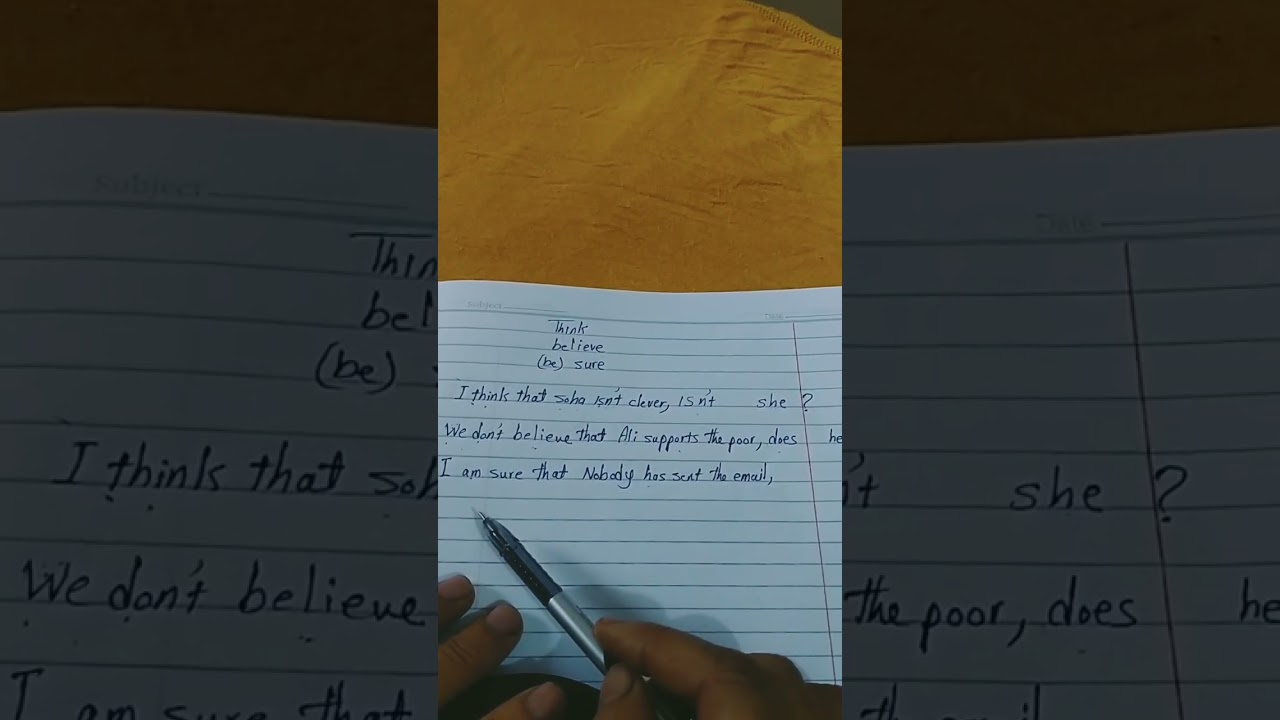 Subject
Date
Think
believe
(be) sure
I think that soha isn't clever, isn't she ?
We don't believe that Ali supports the poor, does he
I am sure that Nobody has sent the email,